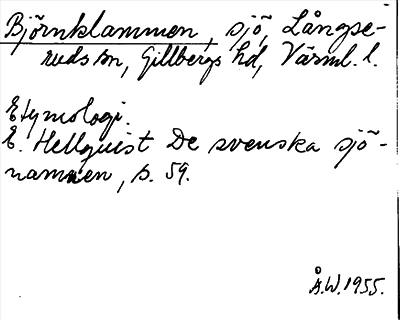 Björnklammen, sjö, Långse-
ruds sn, Gillbergs hd, Värml. l.
Etymologi.
E. Hellquist De svenska sjö-
namnen, s. 59.
Å.W. 1955.